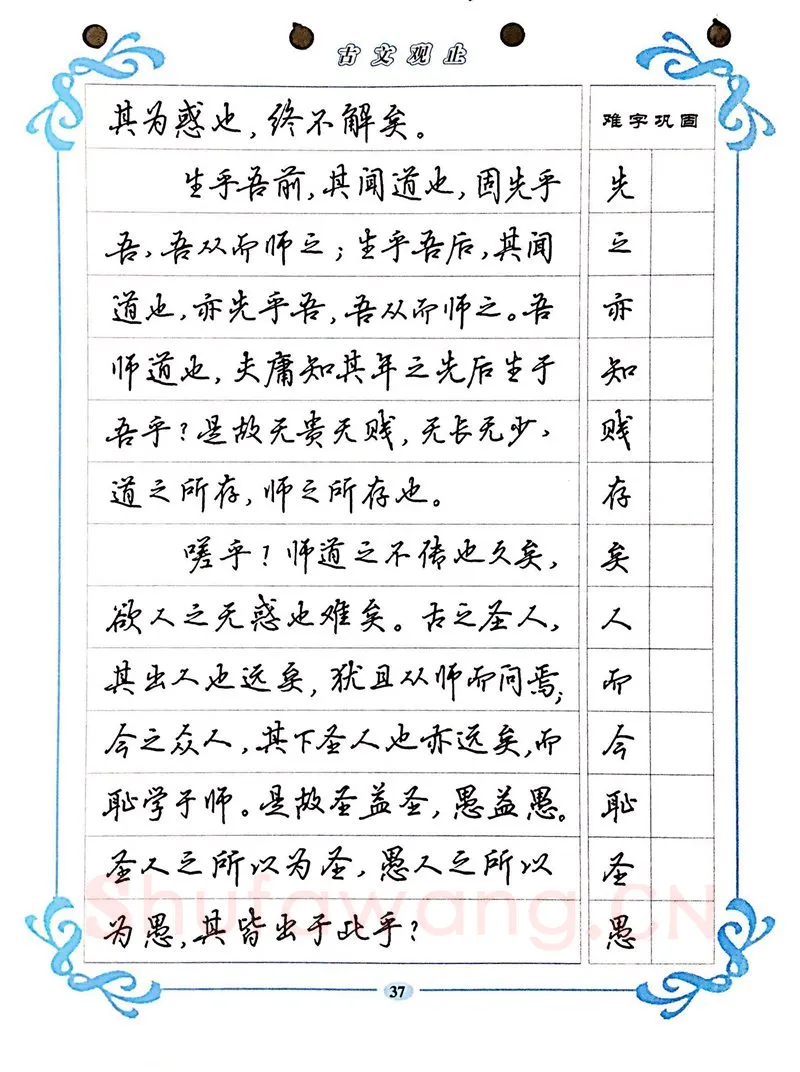 古文观止
其为惑也，终不解矣。
难字巩固
生乎吾前，其闻道也，固先乎
先
吾，吾从而师之；生乎吾后，其闻
之
道也，亦先乎吾，吾从而师之。吾
亦
师道也，夫庸知其年之先后生于
知
吾乎？是故无贵无贱，无长无少，
贱
道之所存，师之所存也。
存
嗟乎？师道之不传也久矣，
矣
欲人之无惑也难矣。古之圣人，
人
其出人也远矣，犹且从师而问焉；
而
今之众人，其下圣人也亦远矣，而
今
耻学于师。是故圣益圣，愚益愚。
耻
圣人之所以为圣，愚人之所以
圣
为愚，其皆出于此乎？
愚
Shufawang.CN
37